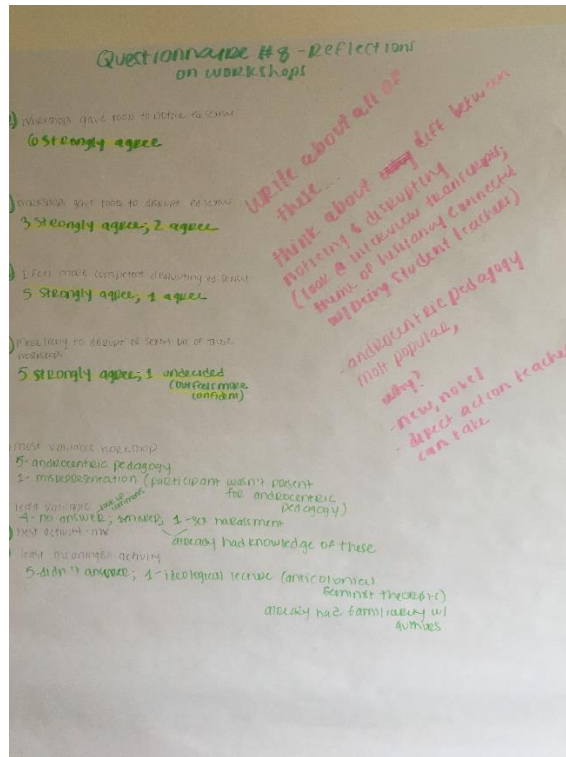 Questionnaire #8 - Reflections
on workshops
workshops gave tools to notice ed sexism
6 strongly agree
workshops gave tools to disrupt ed sexism
3 strongly agree; 2 agree
I feel more competent disrupting ed sexism
5 strongly agree; 1 agree
more likely to disrupt ed sexism bc of these
workshops
5 strongly agree; 1 undecided
(but feels more
confident)
most valuable workshop
5- androcentric pedagogy
1- misrepresentation (participant wasn't present
for androcentric
pedagogy)
least valuable
4- no answer; 1- sex harassment
already had knowledge of these
best activity- mix
least meaningful activity
5-didn't answer; 1-ideological lecture (anticolonial
feminist theorists)
already had familiarity w/
authors
Write about all of
these...
think about diff between
noticing & disrupting
(look @ interview transcripts;
theme of hesitancy connected
w/ being student teachers)
- androcentric pedagogy
most popular,
why?
-new, novel
- direct action teachers
can take